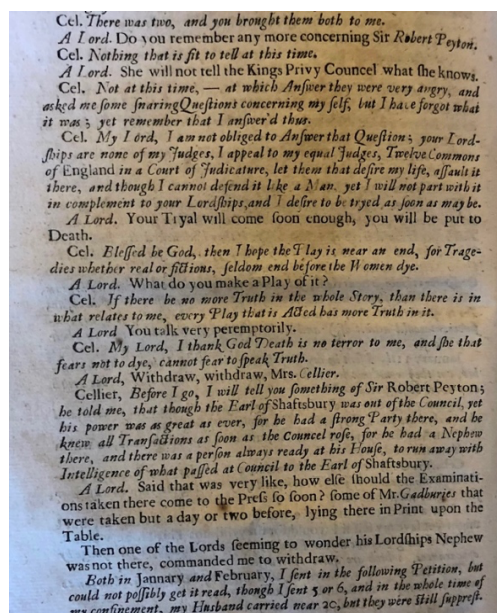 Cel. There was two, and you brought them both to me.
A Lord. Do you remember any more concerning Sir Robert Peyton.
Cel. Nothing that is fit to tell at this time.
A Lord. She will not tell the Kings Privy Councel what ſhe knows.
Cel. Not at this time, — at which Anſwer they were very angry, and
asked me ſome ſnaring Queſtions concerning my ſelf, but I have forgot what
it was; yet remember that I anſwer'd thus.
Cel. My Lord, I am not obliged to Anſwer that Queſtion; your Lord-
ſhips are none of my Judges, I appeal to my equal Judges, Twelve Commons
of England in a Court of Judicature, let them that deſire my life, aſſault it
there, and though I cannot defend it like a Man, yet I will not part with it
in complement to your Lordſhips, and I deſire to be tryed as ſoon as may be.
A Lord. Your Tryal will come ſoon enough, you will be put to
Death.
Cel. Bleſſed be God, then I hope the Play is near an end, for Trage-
dies whether real or fictious, ſeldom end before the Women dye.
A Lord. What do you make a Play of it?
Cel. If there be no more Truth in the whole Story, than there is in
what relates to me, every Play that is Acted has more Truth in it.
A Lord You talk very peremptorily.
Cel. My Lord, I thank God Death is no terror to me, and ſhe that
fears not to dye, cannot fear to ſpeak Truth.
A Lord, Withdraw, withdraw, Mrs. Cellier.
Cellier, Before I go, I will tell you ſomething of Sir Robert Peyton;
he told me, that though the Earl of Shaftsbury was out of the Council, yet
his power was as great as ever, for he had a ſtrong Party there, and he
knew all Tranſactions as ſoon as the Councel roſe, for he had a Nephew
there, and there was a perſon always ready at his Houſe, to run away with
Intelligence of what paſſed at Council to the Earl of Shaftsbury.
A Lord. Said that was very like, how elſe ſhould the Examinati-
ons taken there come to the Preſs ſo ſoon? ſome of Mr. Gadburies that
were taken but a day or two before, lying there in Print upon the
Table.
Then one of the Lords ſeeming to wonder his Lordſhips Nephew
was not there, commanded me to withdraw.
Both in Jannary and February, I ſent in the following Petition, but
could not poſſibly get it read, though I ſent 5 or 6, and in the whole time of
my confinement, my Husband carried near 20, but they were ſtill ſuppreſt.